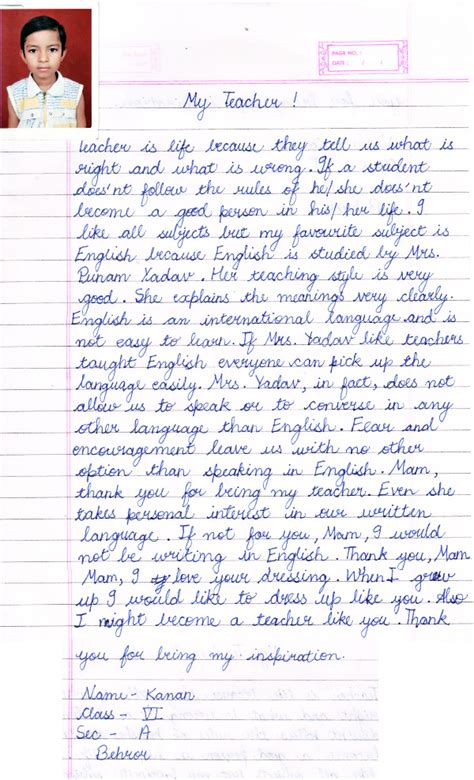 PAGE NO. :
DATE : / /
My Teacher !
Teacher is life because they tell us what is
right and what is wrong. If a student
does'nt follow the rules of he/she does'nt
become a good person in his/her life. I
like all subjects but my favourite subject is
English because English is studied by Mrs.
Punam Yadav. Her teaching style is very
good. She explains the meanings very clearly.
English is an international language and is
not easy to learn. If Mrs. Yadav like teachers
taught English everyone can pick up the
language easily. Mrs. Yadav, in fact, does not
allow us to speak or to converse in any
other language than English. Fear and
encouragement leave us with no other
option than speaking in English. Mam,
thank you for being my teacher. Even she
takes personal interest in our written
language. If not for you, Mam, I would
not be writing in English. Thank you, Mam
Mam, I love your dressing. When I grow
up I would like to dress up like you. Also
I might become a teacher like you. Thank
you for being my inspiration.
Name - Kanan
Class - VI
Sec - A
Behror